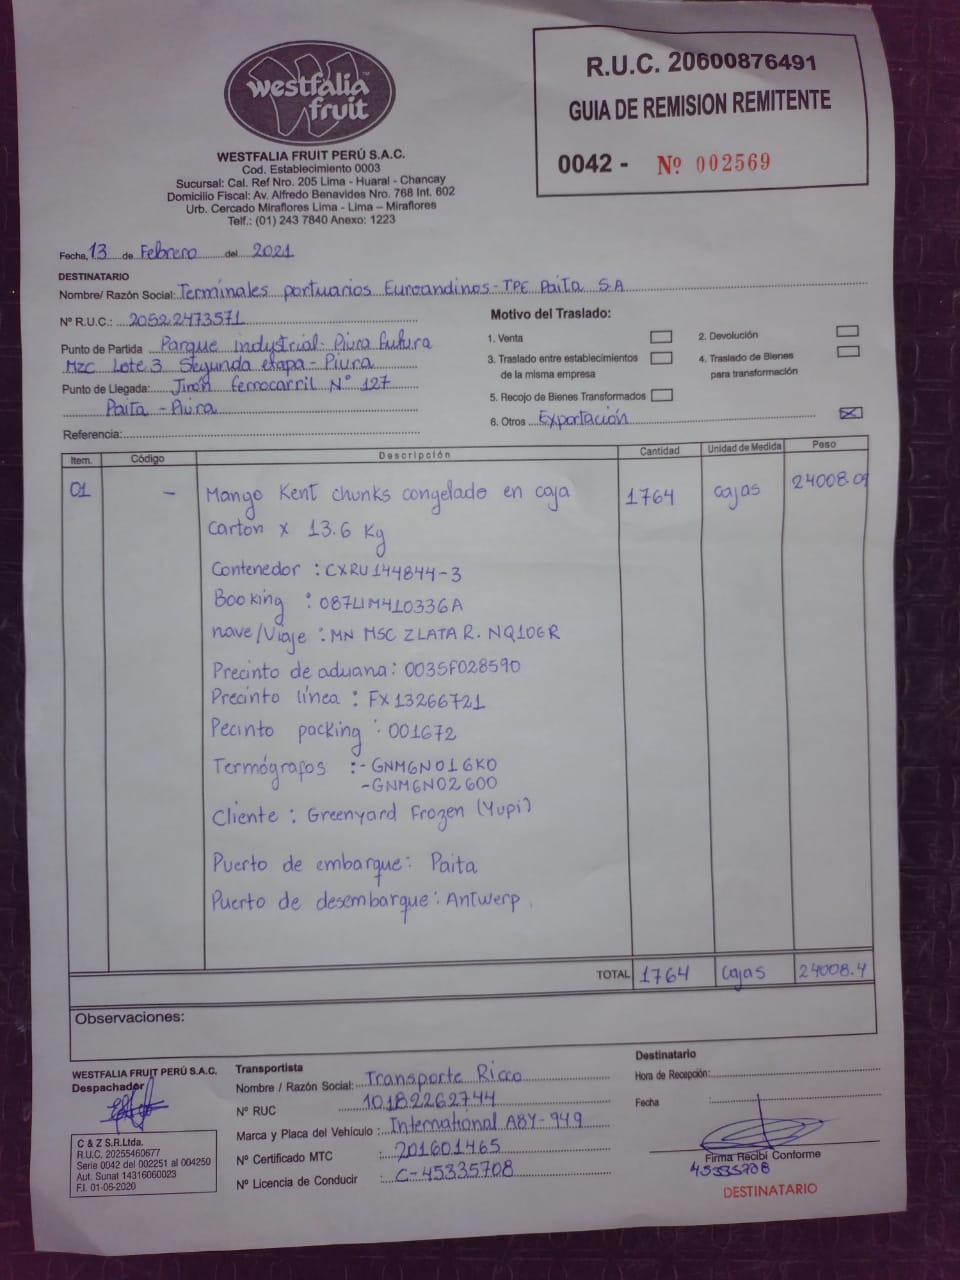 westfalia
fruit
WESTFALIA FRUIT PERÚ S.A.C.
Cod. Establecimiento 0003
Sucursal: Cal. Ref Nro. 205 Lima - Huaral - Chancay
Domicilio Fiscal: Av. Alfredo Benavides Nro. 768 Int. 602
Urb. Cercado Miraflores Lima - Lima – Miraflores
Telf.: (01) 243 7840 Anexo: 1223
R.U.C. 20600876491
GUIA DE REMISION REMITENTE
0042 - Nº 002569
Fecha, 13 de Febrero del 2021
DESTINATARIO
Nombre/ Razón Social: Terminales portuarios Euroandinos - TPE Paita S.A
Nº R.U.C.: 20522473571
Punto de Partida Parque Industrial: Piura futura
Mzc Lote 3 Segunda etapa - Piura
Punto de Llegada: Jirón ferrocarril Nº 127
Paita - Piura
Referencia:
Motivo del Traslado:
1. Venta
2. Devolución
3. Traslado entre establecimientos
de la misma empresa
4. Traslado de Bienes
para transformación
5. Recojo de Bienes Transformados
6. Otros Exportación
Item. Código Descripción Cantidad Unidad de Medida Peso
01 - Mango Kent chunks congelado en caja 1764 cajas
carton x 13.6 Kg
Contenedor : CXRU144844-3
Booking : 087LIM410336A
nave/Viaje : MN MSC ZLATA R. NQ106R
Precinto de aduana: 0035F028590
Precinto línea : FX13266721
Pecinto packing : 001672
Termógrafos :- GNM6N016K0
- GNM6N02600
Cliente : Greenyard Frozen (Yupi)
Puerto de embarque: Paita
Puerto de desembarque: Antwerp.
TOTAL 1764 cajas 24008.4
Observaciones:
WESTFALIA FRUIT PERÚ S.A.C.
Despachador
C & Z S.R.Ltda.
R.U.C. 20255460677
Serie 0042 del 002251 al 004250
Aut. Sunat 14316060023
F.I. 01-06-2020
Transportista
Nombre / Razón Social: Transporte Ricco
Nº RUC 10182262744
Marca y Placa del Vehículo : International A8Y-949
Nº Certificado MTC : 201601465
Nº Licencia de Conducir : C-45335708
Destinatario
Hora de Recepción:
Fecha :
Firma Recibí Conforme
45335708
DESTINATARIO